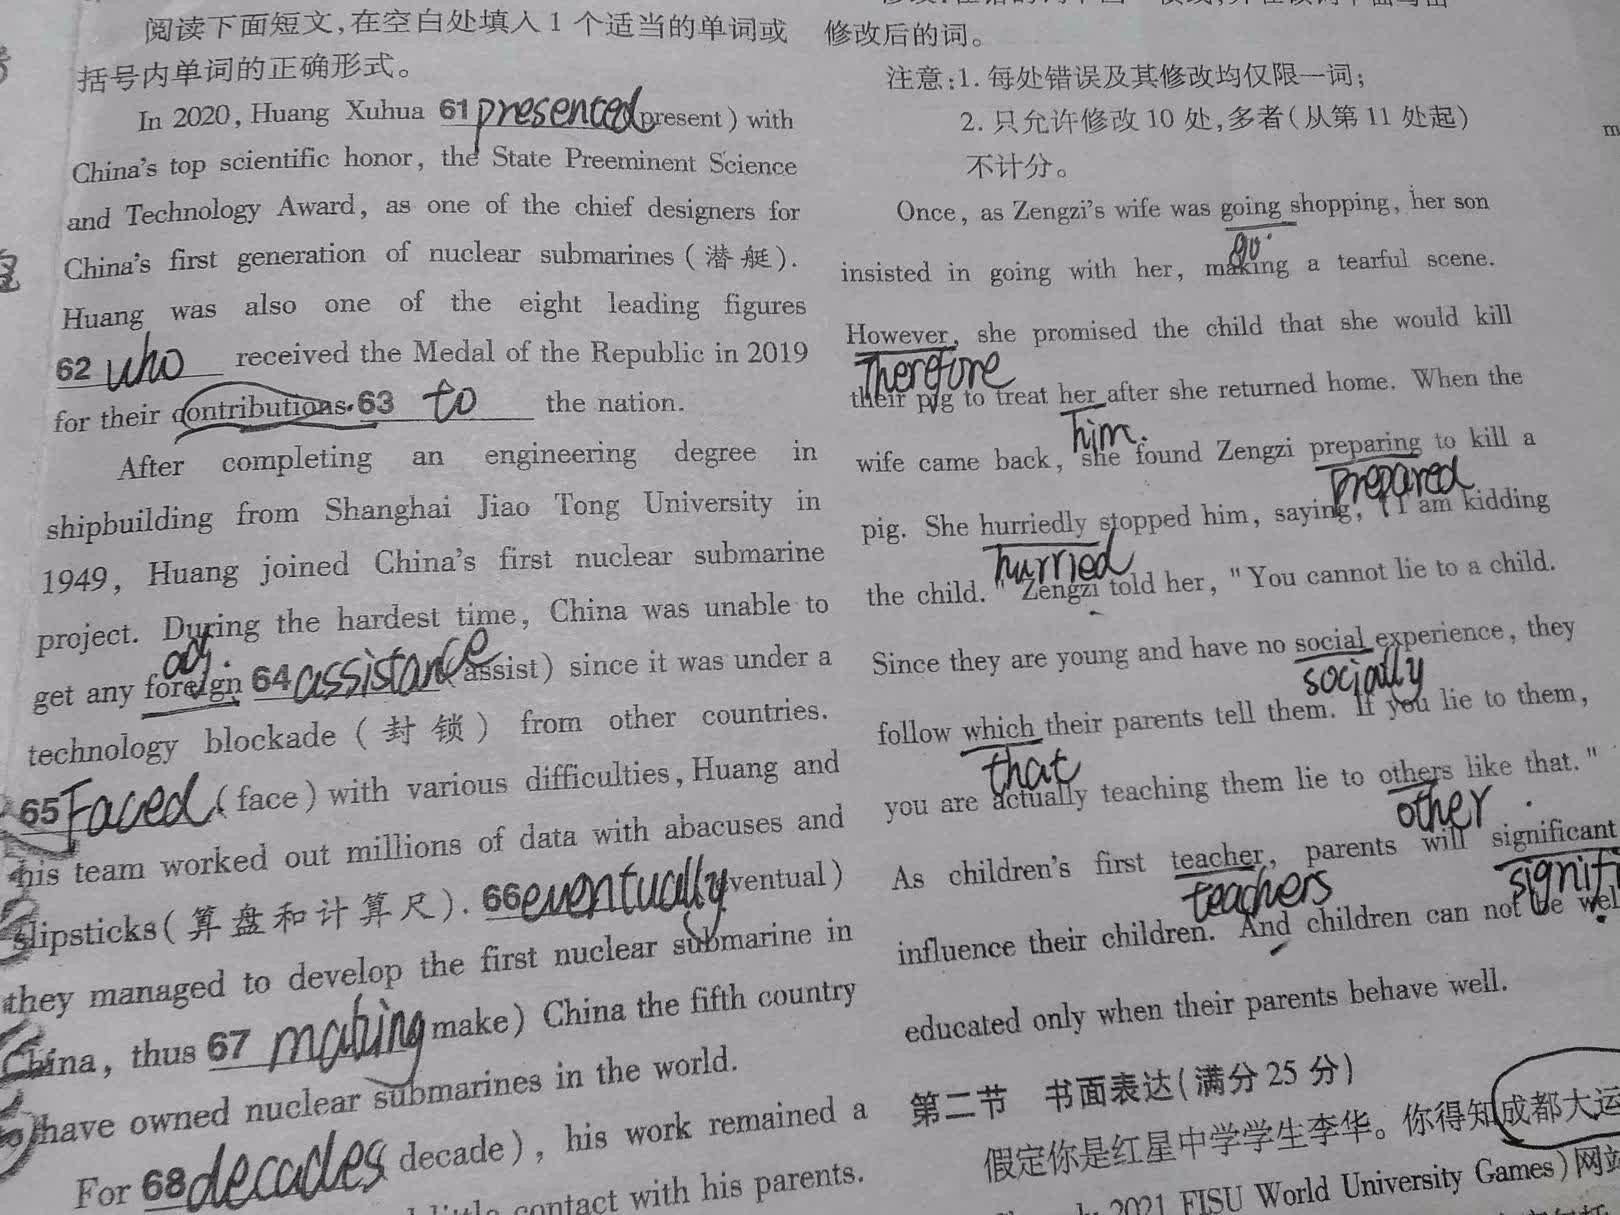 阅读下面短文,在空白处填入1个适当的单词或
括号内单词的正确形式。
In 2020, Huang Xuhua 61 presented (present) with
China's top scientific honor, the State Preeminent Science
and Technology Award, as one of the chief designers for
China's first generation of nuclear submarines (潜艇).
Huang was also one of the eight leading figures
62 who received the Medal of the Republic in 2019
for their contributions 63 to the nation.
After completing an engineering degree in
shipbuilding from Shanghai Jiao Tong University in
1949, Huang joined China's first nuclear submarine
project. During the hardest time, China was unable to
adj.
get any foreign 64 assistance (assist) since it was under a
technology blockade (封锁) from other countries.
65 Faced (face) with various difficulties, Huang and
his team worked out millions of data with abacuses and
slipsticks(算盘和计算尺). 66 eventually (eventual)
they managed to develop the first nuclear submarine in
China, thus 67 making (make) China the fifth country
to have owned nuclear submarines in the world.
For 68 decades (decade), his work remained a
little contact with his parents.
修改后的词。
注意:1. 每处错误及其修改均仅限一词;
2. 只允许修改10处,多者(从第11处起)
不计分。
Once, as Zengzi's wife was going shopping, her son
go
insisted in going with her, making a tearful scene.
However, she promised the child that she would kill
Therefore
their pig to treat her after she returned home. When the
him
wife came back, she found Zengzi preparing to kill a
prepared
pig. She hurriedly stopped him, saying, "I am kidding
hurried
the child." Zengzi told her, "You cannot lie to a child.
Since they are young and have no social experience, they
socially
follow which their parents tell them. If you lie to them,
that
you are actually teaching them lie to others like that."
other
As children's first teacher, parents will significant
teachers signifi
influence their children. And children can not be wel
educated only when their parents behave well.
第二节 书面表达(满分25分)
假定你是红星中学学生李华。你得知成都大运
2021 FISU World University Games)网站